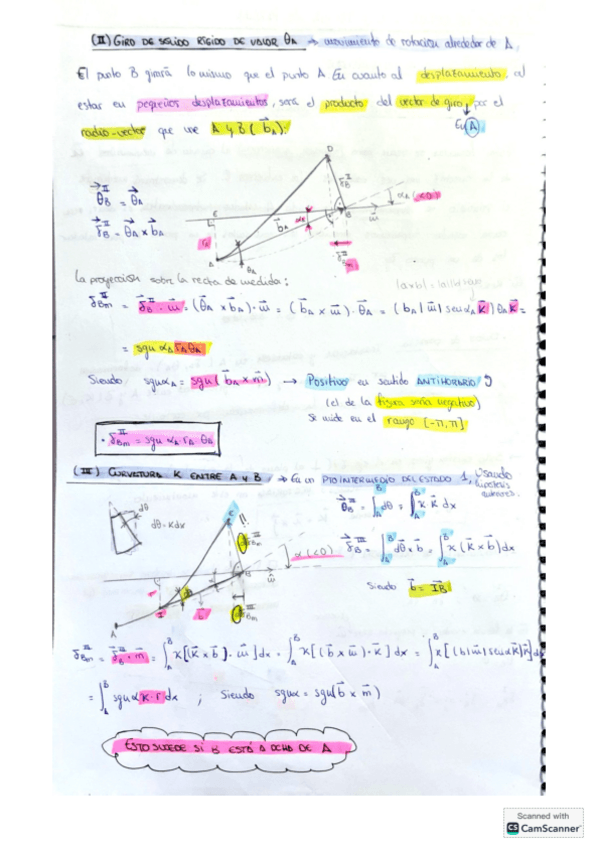 (II) GIRO DE SÓLIDO RÍGIDO DE VALOR θA → movimiento de rotación alrededor de A,
El punto B girará lo mismo que el punto A. En cuanto al desplazamiento, al
estar en pequeños desplazamientos, será el producto del vector de giro por el
En A
radio-vector que une A y B (b⃗A):
θ⃗B^II = θ⃗A
δ⃗B^II = θ⃗A × b⃗A
La proyección sobre la recta de medida:
|axb| = |a||b|
δBm^II = δ⃗B^II · m⃗ = (θ⃗A × b⃗A) · m⃗ = (b⃗A × m⃗) · θ⃗A = (bA |m⃗| sen αA k⃗) θA k⃗ =
= sgn αA rA θA
Siendo sgn αA = sgn (b⃗A × m⃗) → Positivo en sentido ANTIHORARIO
(el de la figura sería negativo)
Se mide en el rango [-π, π]
· δBm^II = sgn αA rA θA
(III) CURVATURA K ENTRE A Y B → En un PTO INTERMEDIO DEL ESTADO 1, Usando
hipótesis
dθ
dθ = Kdx
θ⃗B^III = ∫A^B dθ⃗ = ∫A^B x k⃗ dx
δ⃗B^III = ∫A^B dθ⃗ × b⃗ = ∫A^B x (k⃗ × b⃗) dx
α (<0)
Siendo b⃗ = IB
δBm^III = δ⃗B^III · m⃗ = ∫A^B x [(k⃗ × b⃗) · m⃗] dx = ∫A^B x [(b⃗ × m⃗) · k⃗] dx = ∫A^B x [(b |m⃗| sen α k⃗) k⃗] dx
= ∫A^B sgn α K · r dx ; Siendo sgn α = sgn (b⃗ × m⃗)
ESTO SUCEDE SI B ESTÁ A DCHA DE A
Scanned with
CS CamScanner